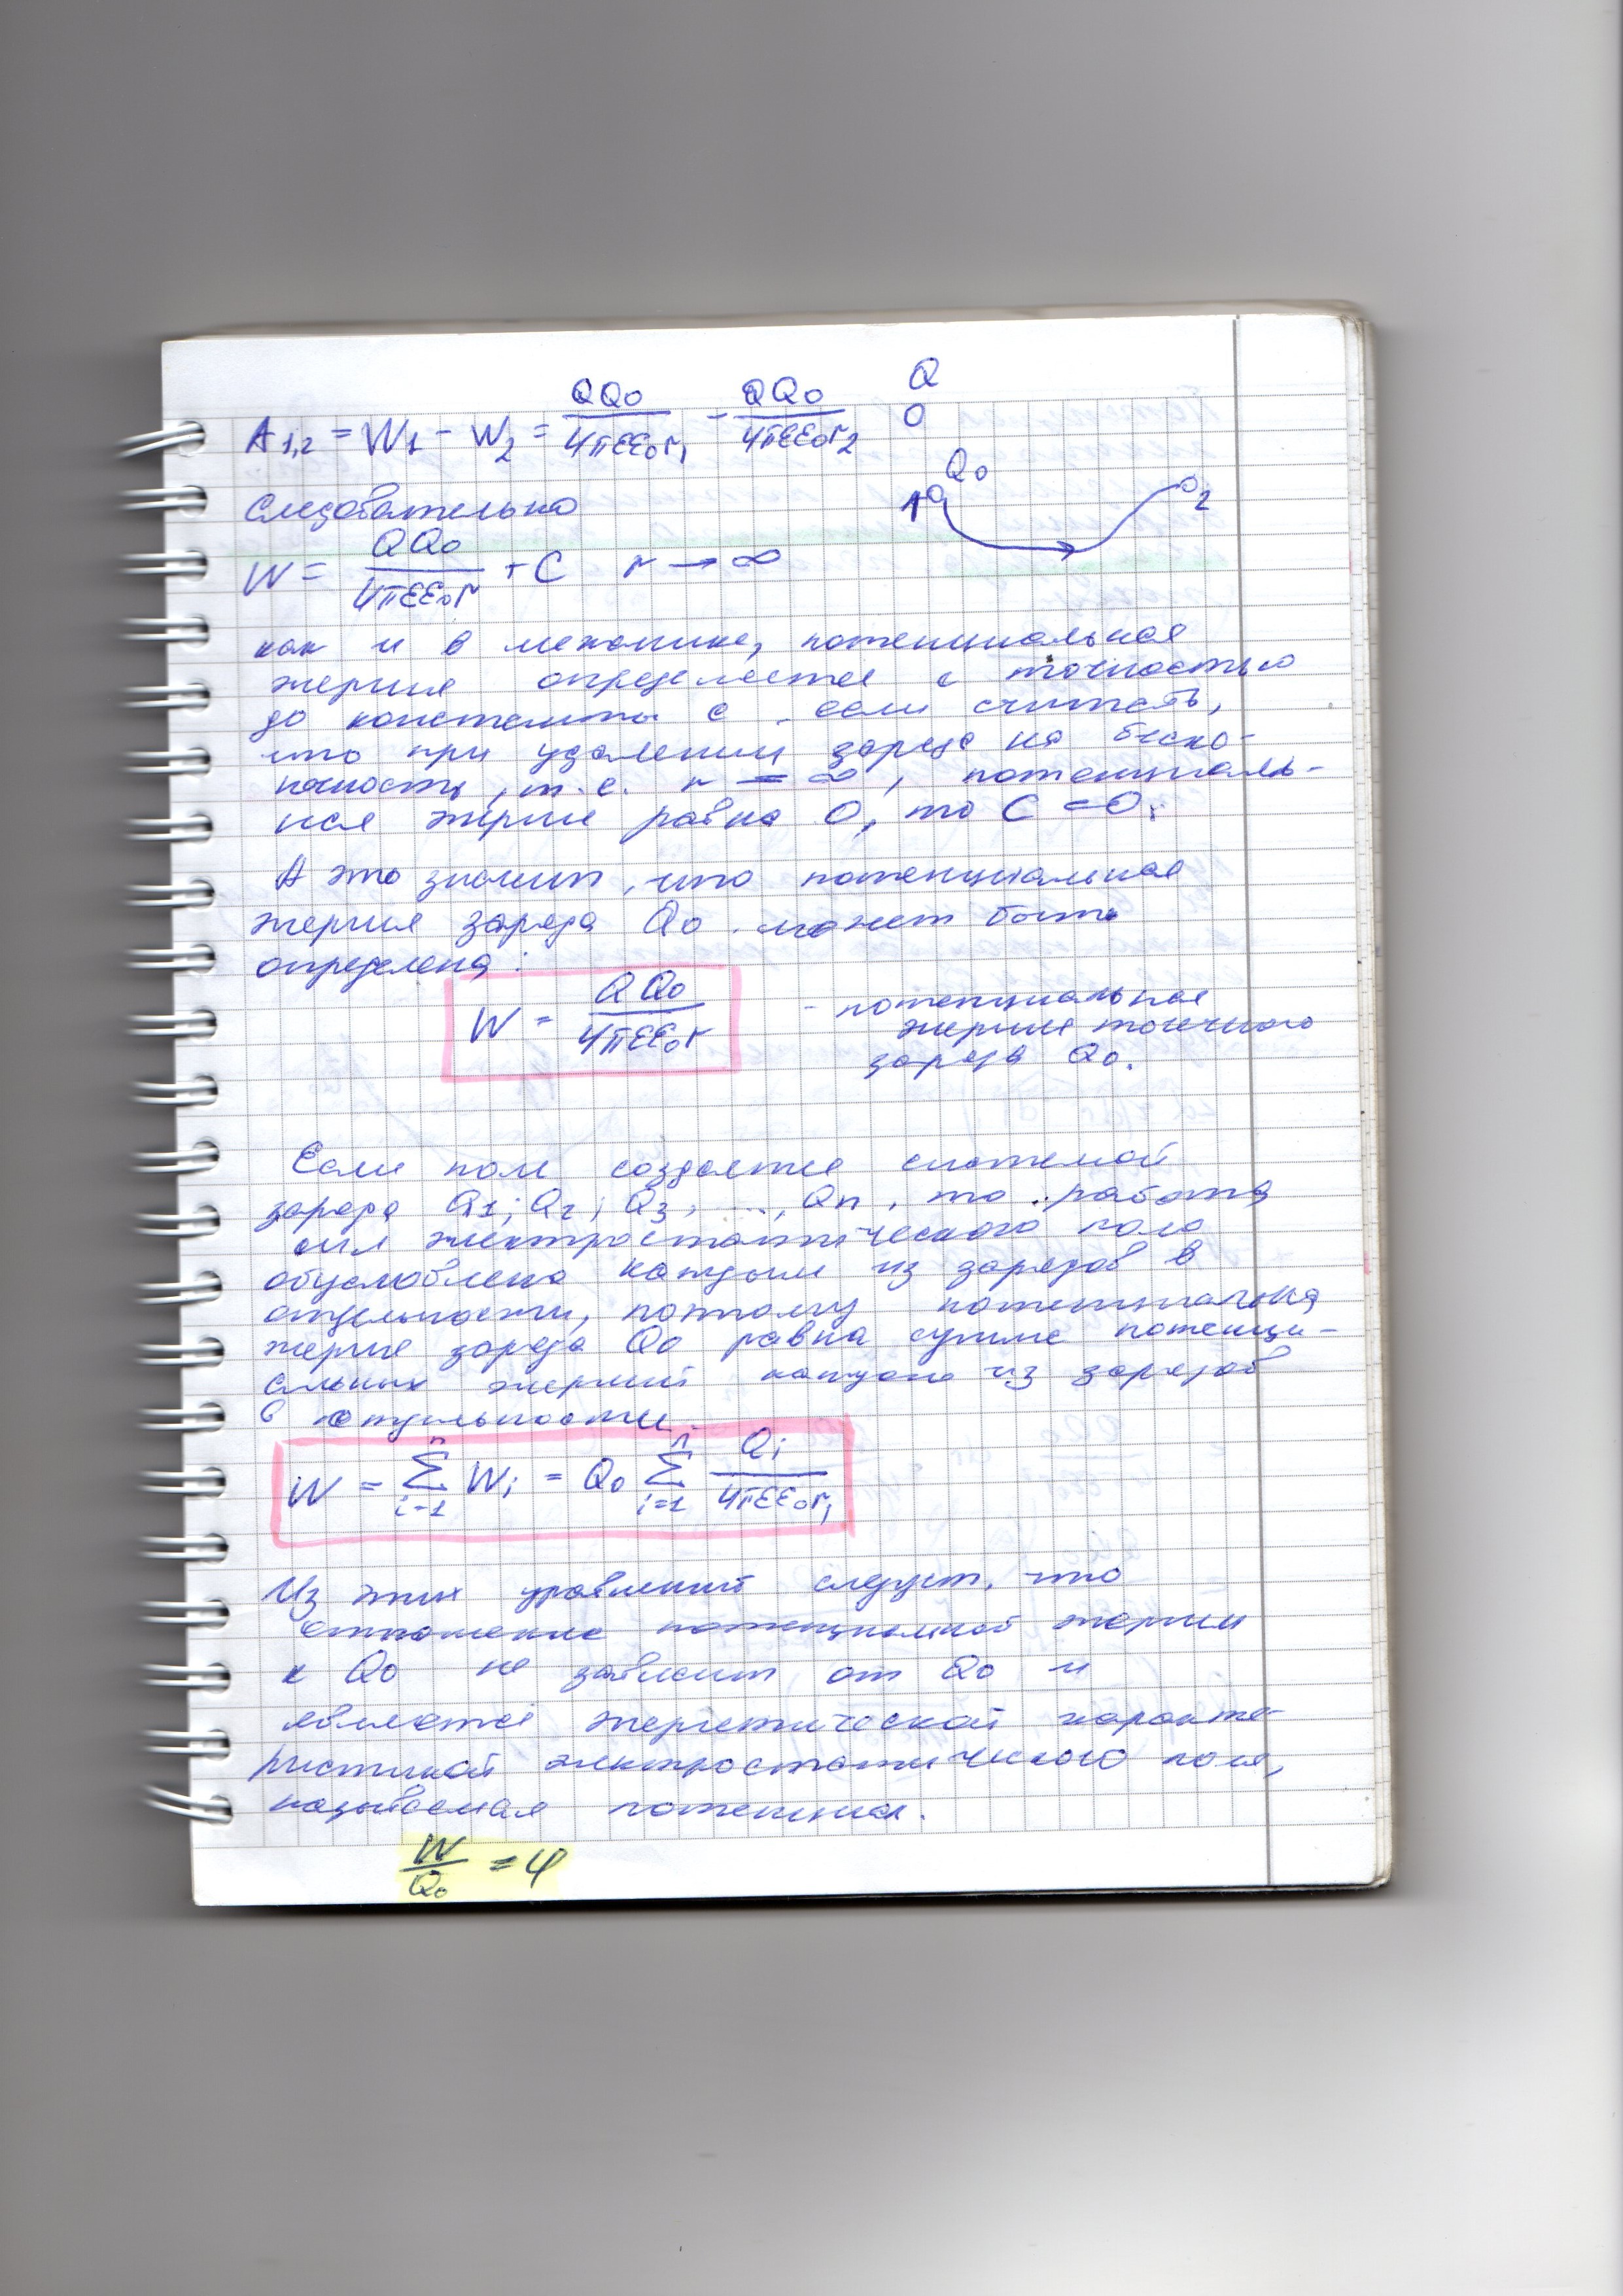 A1,2 = W1 - W2 = QQ0/4πεε0r1 - QQ0/4πεε0r2
Q
Q0
1
2
Следовательно
W = QQ0/4πεε0r + C r → ∞
как и в механике, потенциальная
энергия определяется с точностью
до константы с. если считать,
что при удалении заряда на беско-
нечность, т.е. r = ∞, потенциаль-
ная энергия равна 0, то C = 0.
А это значит, что потенциальная
энергия заряда Q0 может быть
определена:
W = QQ0/4πεε0r
- потенциальная
энергия точечного
заряда Q0.
Если поле создается системой
заряда Q1; Q2; Q3, ..., Qn, то работа
сил электростатического поля
обусловлена каждым из зарядов в
отдельности, поэтому потенциальная
энергия заряда Q0 равна сумме потенци-
альных энергий каждого из зарядов
в отдельности.
W = n∑i=1 Wi = Q0 n∑i=1 Qi/4πεε0ri
Из этих уравнений следует, что
отношение потенциальной энергии
к Q0 не зависит от Q0 и
является энергетической характе-
ристикой электростатического поля,
называемая потенциал.
W/Q0 = φ